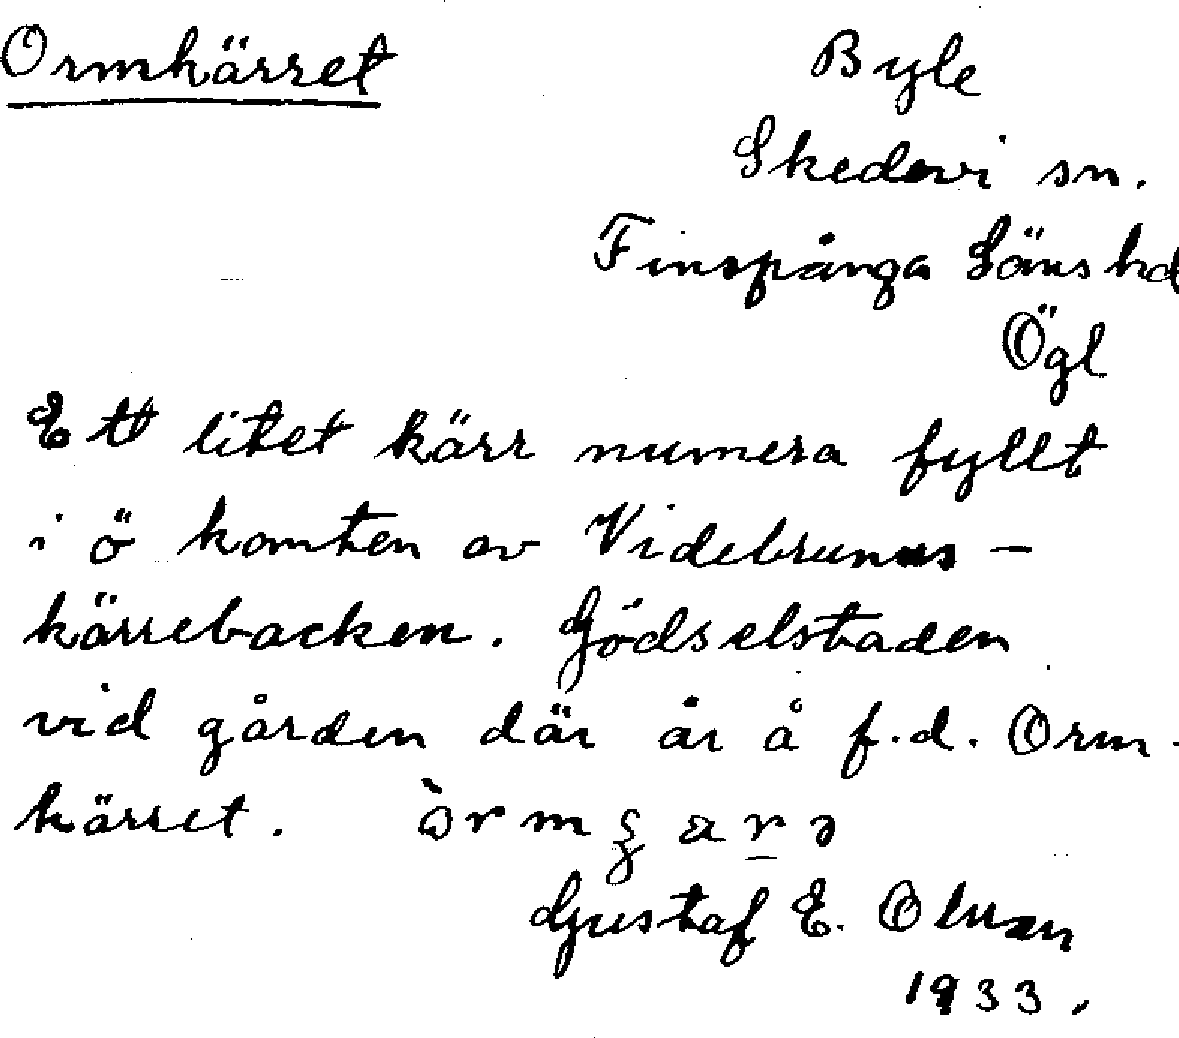 Ormkärret
Byle
Skedevi sn.
Finspånga Läns hd
Ögl
Ett litet kärr numera fyllt
i ö kanten av Videbrunns-
kärrebacken. Gödselstaden
vid gården där är å f.d. Orm-
kärret.
Gustaf E.
1933.